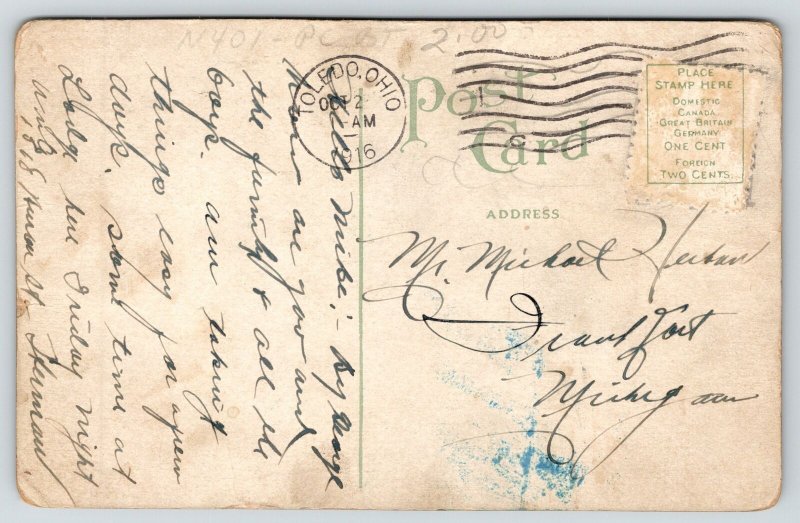 M401-PC OT 2.00
TOLEDO, OHIO
OCT 2
AM
1916
Post
Card
PLACE
STAMP HERE
DOMESTIC
CANADA
GREAT BRITAIN
GERMANY
ONE CENT
FOREIGN
TWO CENTS.
ADDRESS
Mr. Michael
Frankfort
Michigan
Hello Mike:- By George
How are you and
the family & all the
boys. am taking
things easy for a few
days. some time at
Lodge here Friday night
Huron St. Herman